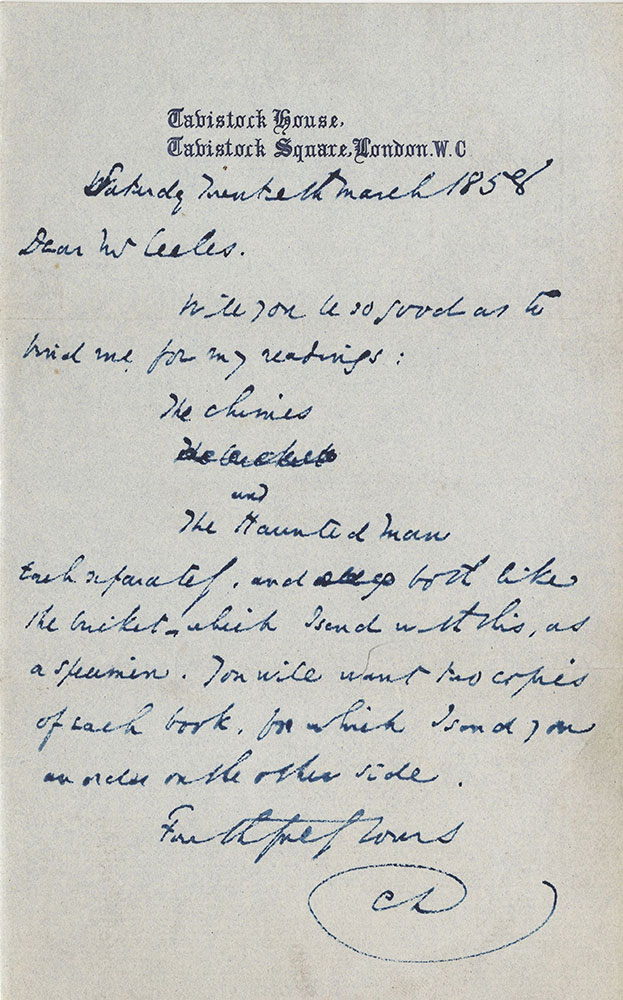 Tavistock House,
Tavistock Square, London. W. C
Saturday Twentieth March 1858
Dear Mr Eeles.
Will you be so good as to
bind me, for my readings:
The Chimes
and
The Haunted Man
Each separately, and both like
the Cricket which I send with this, as
a specimen. You will want two copies
of each book, for which I send you
an order on the other side.
Faithfully Yours
CD